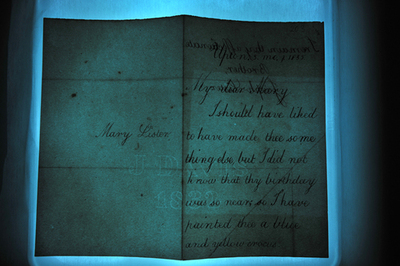 Mary Lister
My dear Mary
I should have liked
to have made thee some
thing else, but I did not
know that thy birthday
was so near, so I have
painted thee a blue
and yellow crocus